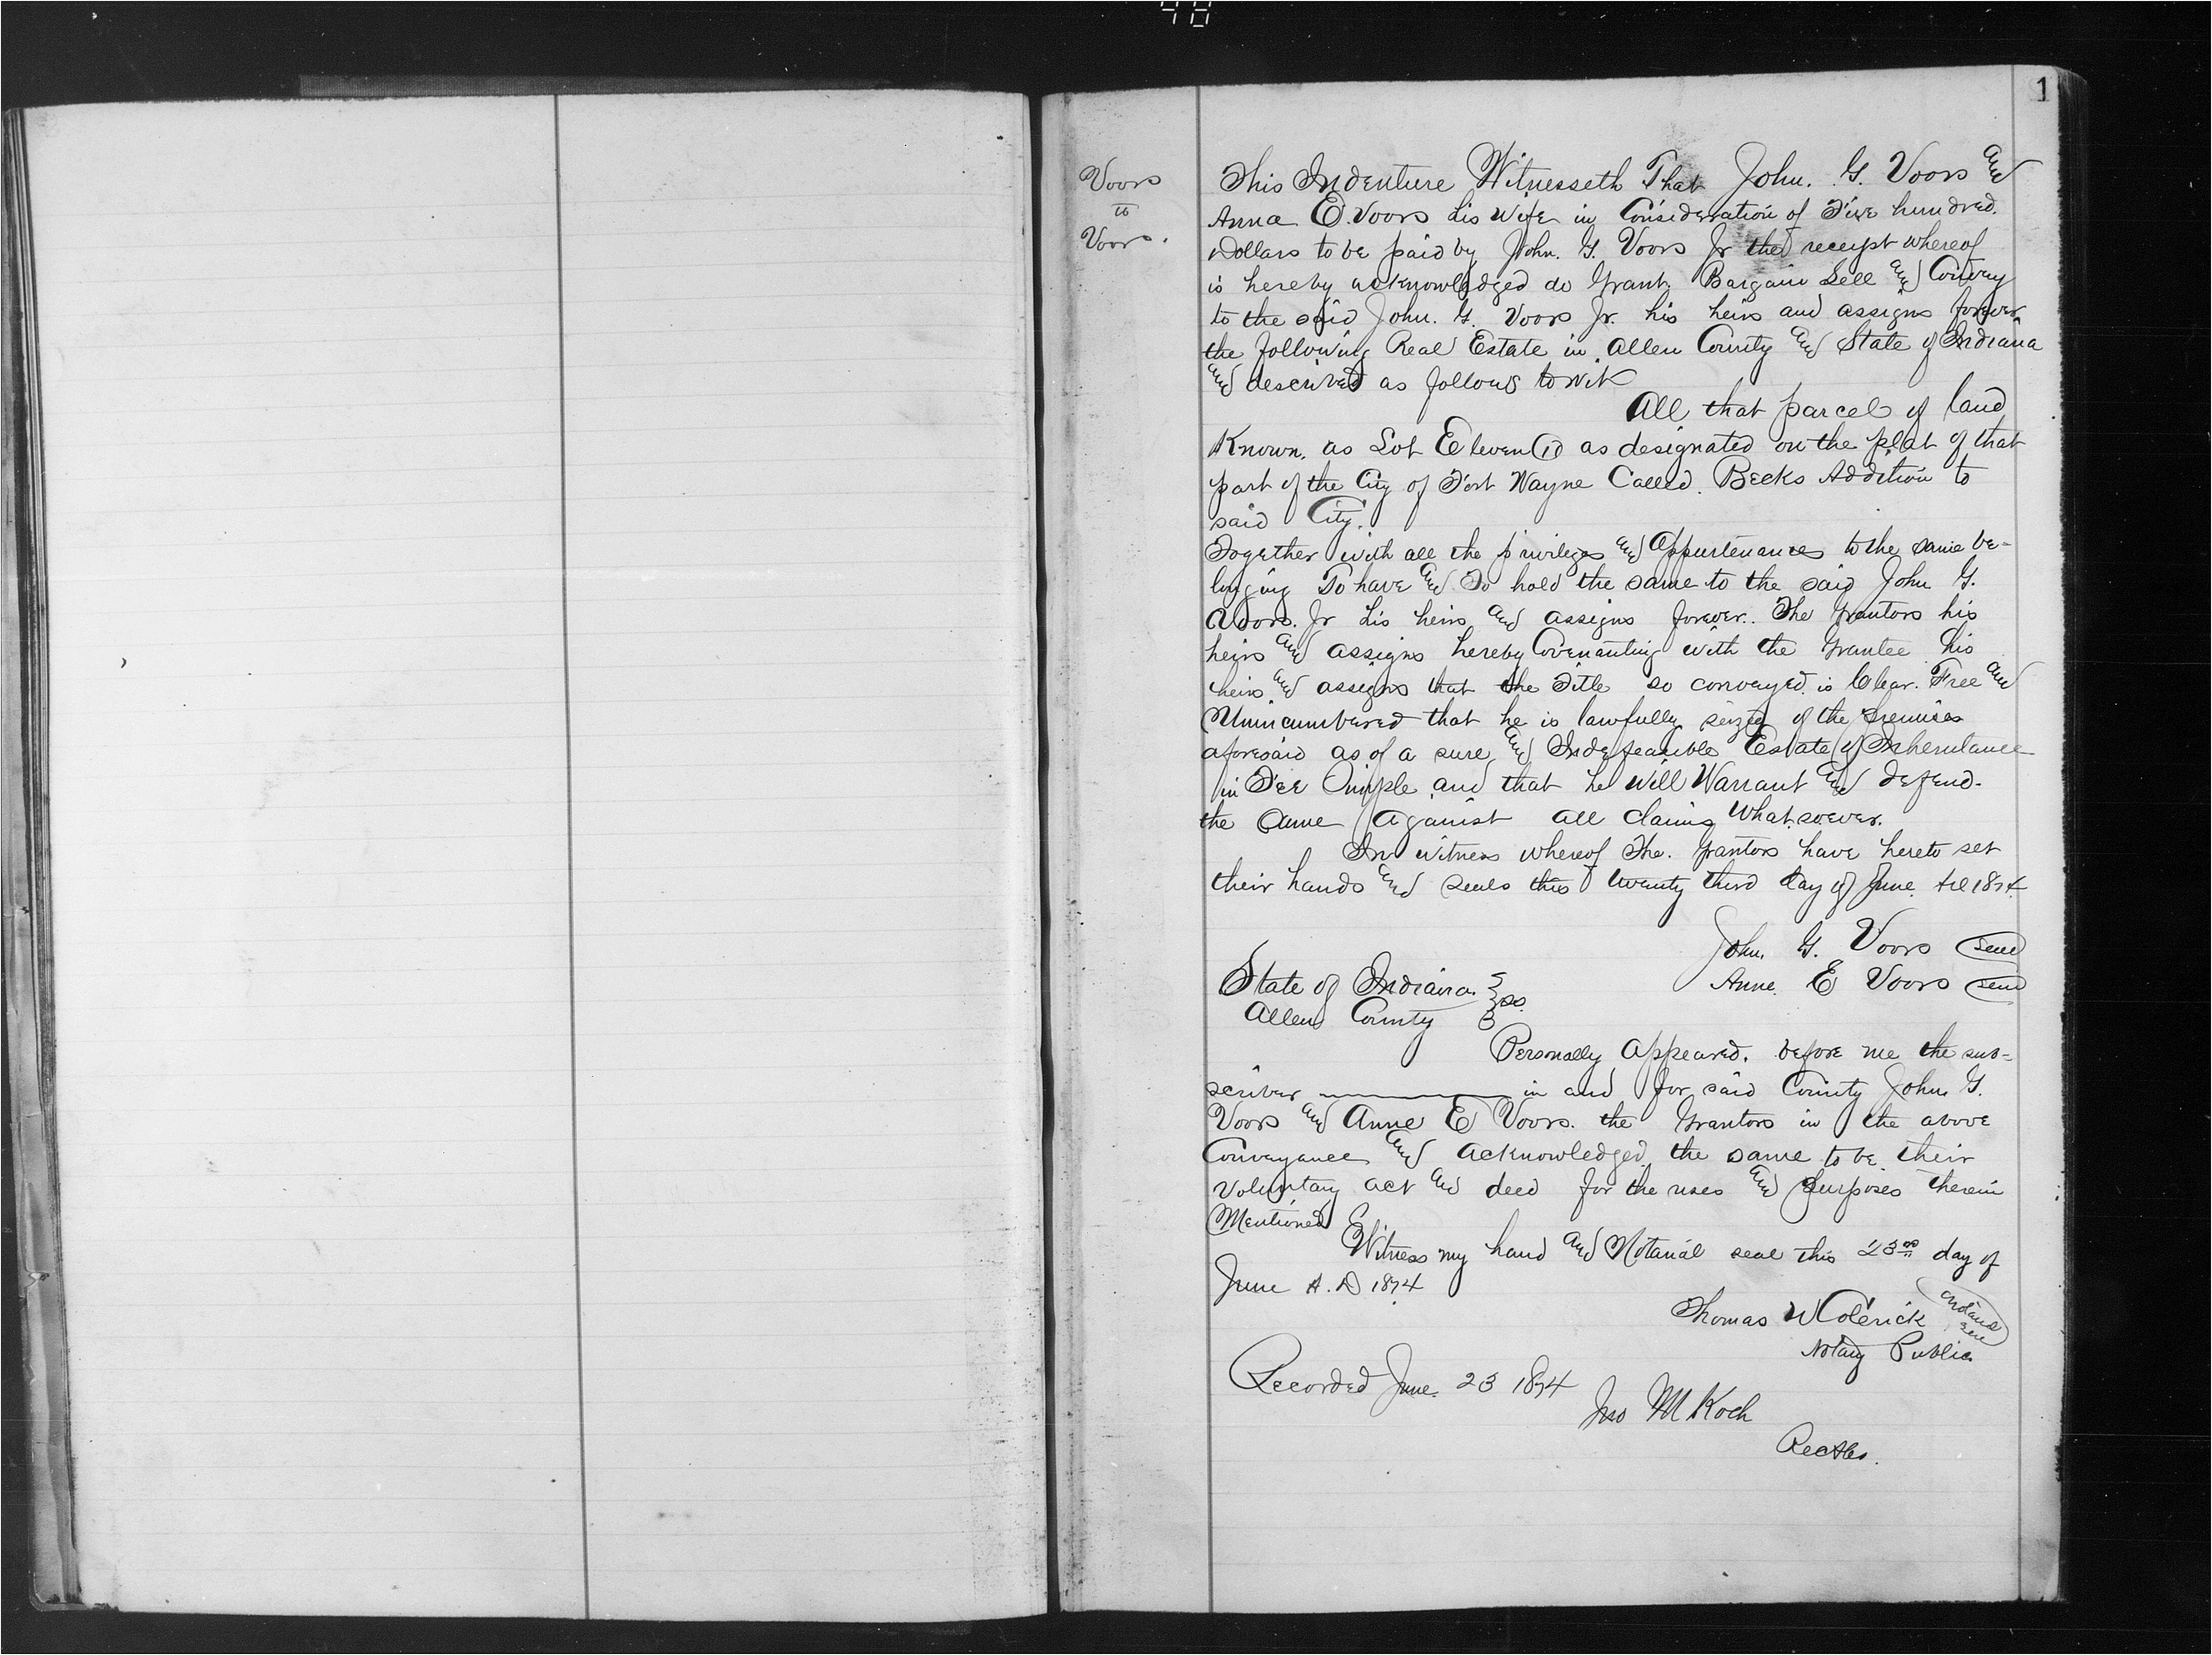 48
1
Voors
to
Voors.
This Indenture Witnesseth That John. G. Voors and
Anna E. Voors his wife in Consideration of Five hundred.
Dollars to be paid by John. G. Voors Jr the receipt whereof
is hereby acknowledged do Grant. Bargain Sell and Convey
to the said John. G. Voors Jr. his heirs and assigns forever
the following Real Estate in Allen County and State of Indiana
and described as follows to wit
All that parcel of land
Known. as Lot Eleven (11) as designated on the plat of that
part of the City of Fort Wayne Called. Becks Addition to
said City.
Together with all the privileges and Appurtenances to the same be-
longing To have and To hold the same to the said John G.
Voors. Jr his heirs and assigns forever. The Grantors his
heirs and assigns hereby Covenanting with the Grantee his
heirs and assigns that the Title so conveyed is Clear. Free and
Unincumbered that he is lawfully seized of the Premises
aforesaid as of a sure and Indefeasible Estate of Inheritance
in Fee Simple and that he will Warrant and defend.
the Same Against all claims Whatsoever.
In witness whereof The. Grantors have hereto set
their hands and seals this twenty third day of June. AD 1874
John. G. Voors Seal
Anne. E Voors Seal
State of Indiana. } ss.
Allen County
Personally Appeared. before me the sub-
scriber ———— in and for said County John. G.
Voors and Anne E Voors. the Grantors in the above
Conveyance and acknowledged the same to be their
voluntary act and deed for the uses and purposes therein
Mentioned
Witness my hand and Notarial seal this 23rd day of
June A. D 1874
Thomas W Colerick
Notary Public
Recorded June. 23 1874
Jno M Koch